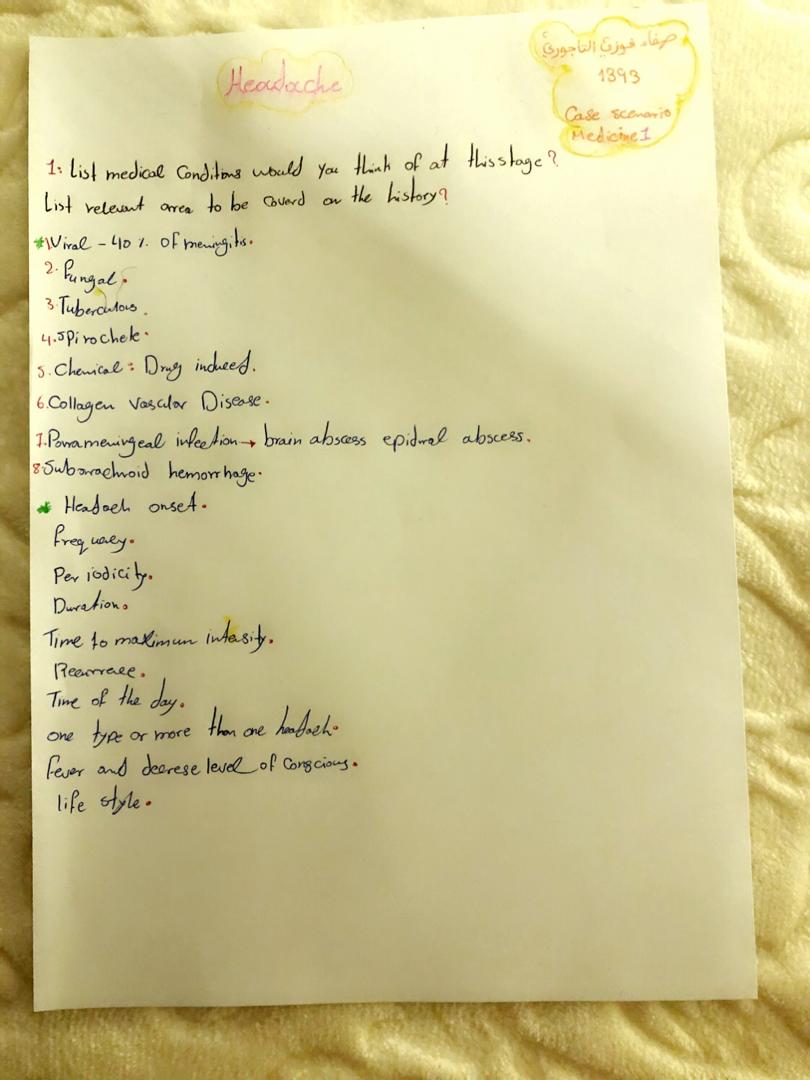 Headache
صفاء فوزي التاجوري
1393
Case scenario
Medicine 1
1: List medical Conditions would you think of at this stage?
List relevant area to be Coverd on the history?
* 1\ Viral - 40 %. Of meningitis.
2. Fungal.
3. Tuberculous.
4. Spirochete.
5. Chemical: Drug induced.
6. Collagen vascular Disease.
7. Parameningeal infection → brain abscess epidural abscess.
8. Subarachnoid hemorrhage.
* Headach onset.
Frequaey.
Periodicity.
Duration.
Time to maximun intesity.
Time of the day.
one type or more than one headach.
Fever and decrese level of Conscious.
life style.